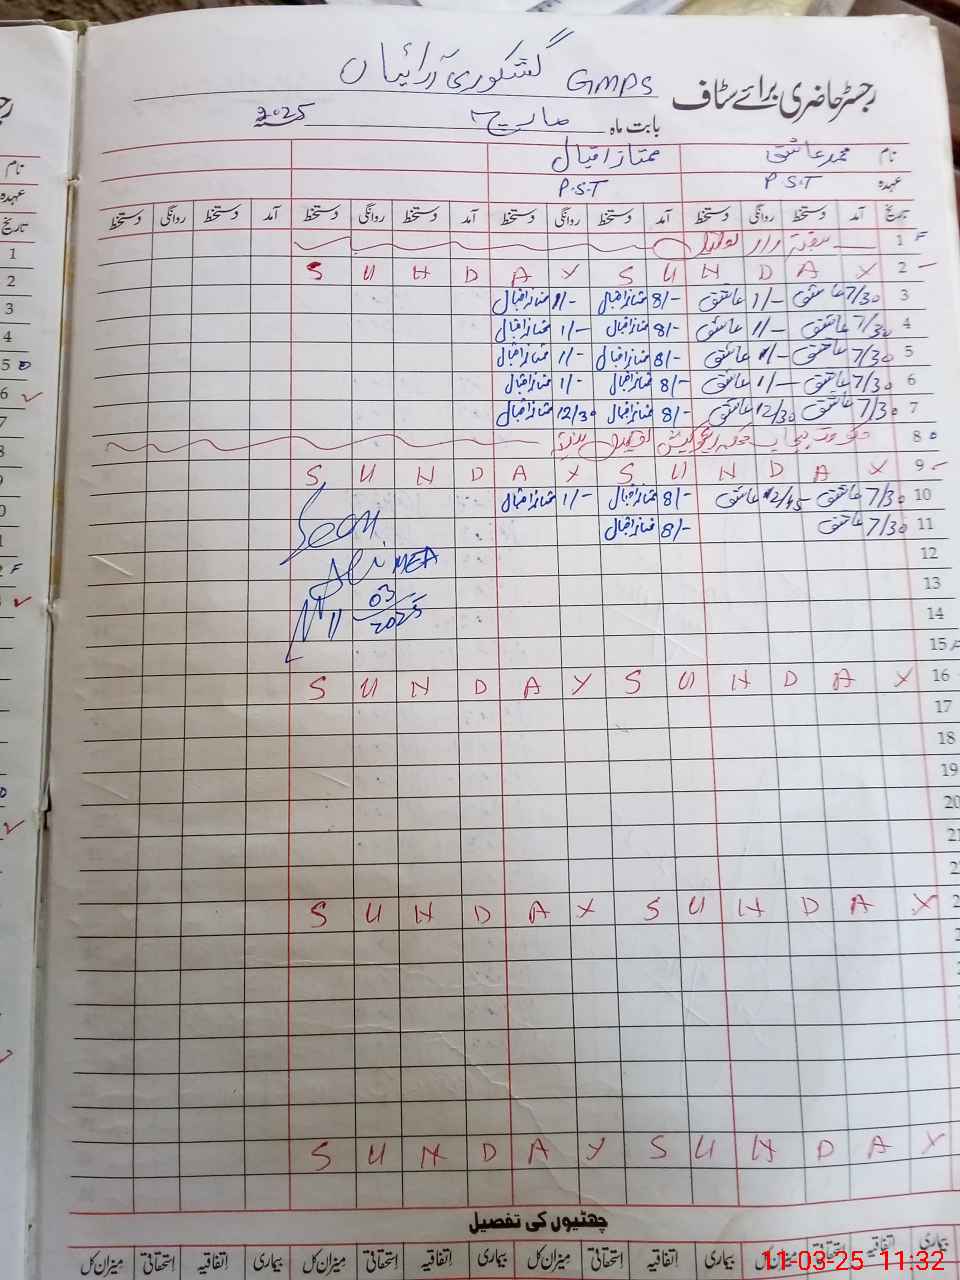 رجسٹر حاضری برائے سٹاف GMPS گشکوری آرائیاں
بابت ماہ مارچ 2025
نام محمد عاشق ممتاز اقبال
عہدہ P.S.T P.S.T
تاریخ آمد دستخط روانگی دستخط آمد دستخط روانگی دستخط آمد دستخط روانگی دستخط آمد دستخط روانگی دستخط
1 F
2 S U N D A Y S U N D A Y
3 7/30 عاشق 1/- عاشق 8/- ممتاز اقبال 1/- ممتاز اقبال
4 7/30 عاشق 1/- عاشق 8/- ممتاز اقبال 1/- ممتاز اقبال
5 7/30 عاشق 1/- عاشق 8/- ممتاز اقبال 1/- ممتاز اقبال
6 7/30 عاشق 1/- عاشق 8/- ممتاز اقبال 1/- ممتاز اقبال
7 7/30 عاشق 12/30 عاشق 8/- ممتاز اقبال 12/30 ممتاز اقبال
8
9 S U N D A Y S U N D A Y
10 7/30 عاشق 12/45 عاشق 8/- ممتاز اقبال 1/- ممتاز اقبال
11 7/30 عاشق 8/- ممتاز اقبال
Seen
12
MEA
13
11 03 2025
14
15
16 S U N D A Y S U N D A Y
17
18
19
20
S U N D A Y S U N D A Y
S U N D A Y S U N D A Y
چھٹیوں کی تفصیل
بیماری اتفاقیہ استحقاقی میزان کل بیماری اتفاقیہ استحقاقی میزان کل بیماری اتفاقیہ استحقاقی میزان کل بیماری اتفاقیہ استحقاقی میزان کل
11-03-25 11:32